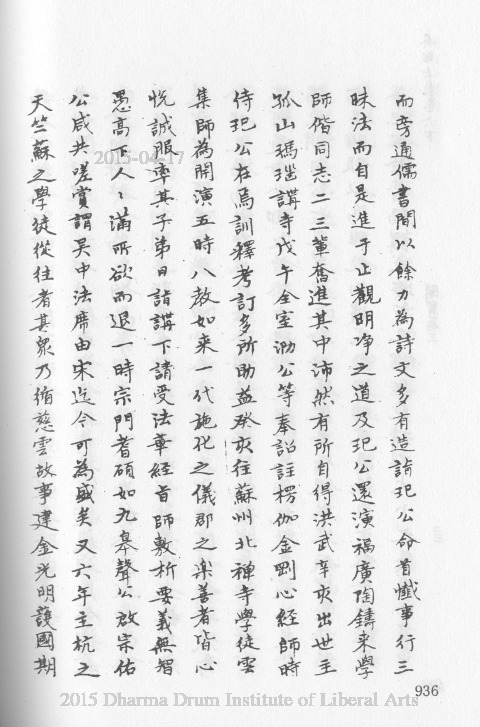 而旁通儒書間以餘力為詩文多有造詣玘公命首懺事行三
昧法而自是進于止觀明净之道及玘公還演福廣陶鑄来學
師偕同志二三輩奮進其中沛然有所自得洪武辛亥出世主
孤山瑪瑙講寺戊午全室泐公等奉詔註楞伽金剛心經師時
侍玘公在焉訓釋考訂多所助益癸亥往蘇州北禅寺學徒雲
集師為開演五時八教如来一代施化之儀郡之樂善者皆心
悦誠服率其子弟日詣講下請受法華經旨師敷析要義無智
愚高下人〻滿所欲而退一時宗門耆碩如九皋聲公啟宗佑
公咸共嗟賞謂吴中法席由宋迄今可為盛矣又六年主杭之
天竺蘇之學徒從往者甚衆乃循慈雲故事建金光明護國期
936
2015-04-17
2015 Dharma Drum Institute of Liberal Arts